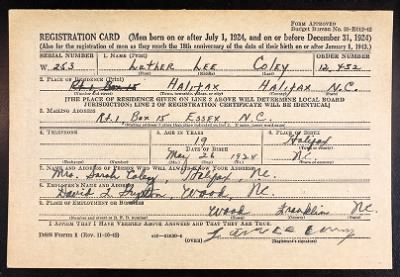 FORM APPROVED
REGISTRATION CARD (Men born on or after July 1, 1924, and on or before December 31, 1924)
(Also for the registration of men as they reach the 18th anniversary of the date of their birth on or after January 1, 1943.)
SERIAL NUMBER 1. NAME (Print) ORDER NUMBER
W. 253 Luther Lee Coley 12,452
(First) (Middle) (Last)
2. PLACE OF RESIDENCE (Print)
Rt.1 Box 15 Halifax Halifax N.C.
[THE PLACE OF RESIDENCE GIVEN ON LINE 2 ABOVE WILL DETERMINE LOCAL BOARD
JURISDICTION; LINE 2 OF REGISTRATION CERTIFICATE WILL BE IDENTICAL]
3. MAILING ADDRESS
Rt.1 Box 15 Essex N.C.
4. TELEPHONE 5. AGE IN YEARS 6. PLACE OF BIRTH
19 Halifax
DATE OF BIRTH
May 26 1924 N.C.
7. NAME AND ADDRESS OF PERSON WHO WILL ALWAYS KNOW YOUR ADDRESS
Mrs. Sarah Coley, Halifax, N.C.
8. EMPLOYER'S NAME AND ADDRESS
David L. Wood, N.C.
9. PLACE OF EMPLOYMENT OR BUSINESS
Wood Franklin N.C.
I AFFIRM THAT I HAVE VERIFIED ABOVE ANSWERS AND THAT THEY ARE TRUE.
DSS Form 1 (Rev. 11-16-42) (OVER) (Registrant's signature)